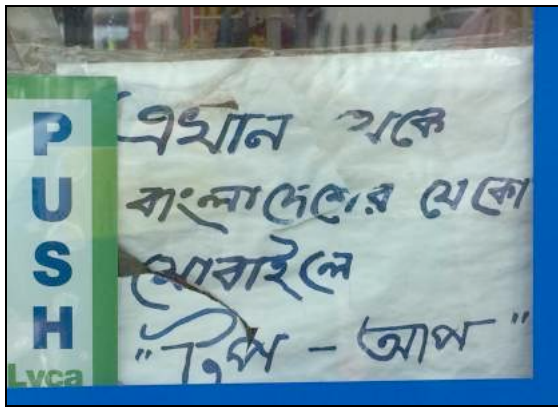 PUSH
Lyca
এখান থেকে
বাংলাদেশের যেকো
মোবাইলে
"টপ - আপ"